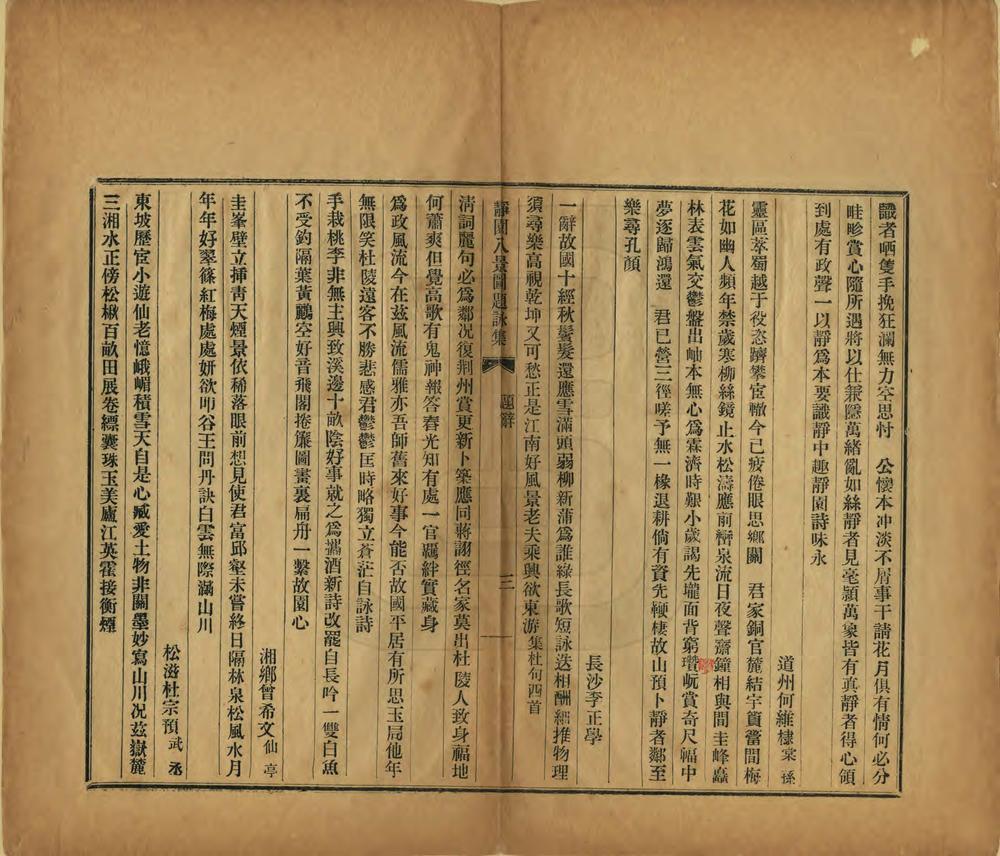 識者哂隻手挽狂瀾無力空思忖　公懷本冲淡不屑事干請花月俱有情何必分
畦畛賞心隨所遇將以仕兼隱萬緒亂如絲靜者見毫顚萬象皆有眞靜者得心領
到處有政聲一以靜爲本要識靜中趣靜園詩味永
道州何維棣棠孫
靈區萃蜀越于役恣躋攀宦轍今已疲倦眼思鄉關　君家銅官麓結宇篔簹間梅
花如幽人頻年禁歲寒柳絲鏡止水松濤應前巒泉流日夜聲齋鐘相與間圭峰矗
林表雲氣交鬱盤出岫本無心爲霖濟時艱小歲謁先壠面背窮巑岏賞奇尺幅中
夢逐歸鴻還　君已營三徑嗟予無一椽退耕倘有資先輭棲故山預卜靜者鄰至
樂尋孔顏
長沙李正學
一辭故國十經秋鬢髮還應雪滿頭弱柳新蒲爲誰綠長歌短詠迭相酬細推物理
須尋樂高視乾坤又可愁正是江南好風景老夫乘興欲東游集杜句四首
靜園八景圖題詠集　題辭　三
淸詞麗句必爲鄰况復荆州賞更新卜築應同蔣詡徑名家莫出杜陵人致身福地
何蕭爽但覺高歌有鬼神報答春光知有處一官羈絆實藏身
爲政風流今在茲風流儒雅亦吾師舊來好事今能否故國平居有所思玉局他年
無限笑杜陵遠客不勝悲感君鬱鬱匡時略獨立蒼茫自詠詩
手栽桃李非無主興致溪邊十畝陰好事就之爲攜酒新詩改罷自長吟一雙白魚
不受釣隔葉黃鸝空好音飛閣捲簾圖畫裏扁舟一繫故園心
湘鄉曾希文仙亭
圭峯壁立揷靑天煙景依稀落眼前想見使君富邱壑未嘗終日隔林泉松風水月
年年好翠篠紅梅處處妍欲叩谷王問丹訣白雲無際滿山川
松滋杜宗預武丞
東坡歷宦小遊仙老憶峨嵋積雪天自是心臧愛土物非關墨妙寫山川况茲嶽麓
三湘水正傍松楸百畝田展卷縹囊珠玉美廬江英霍接衡煙